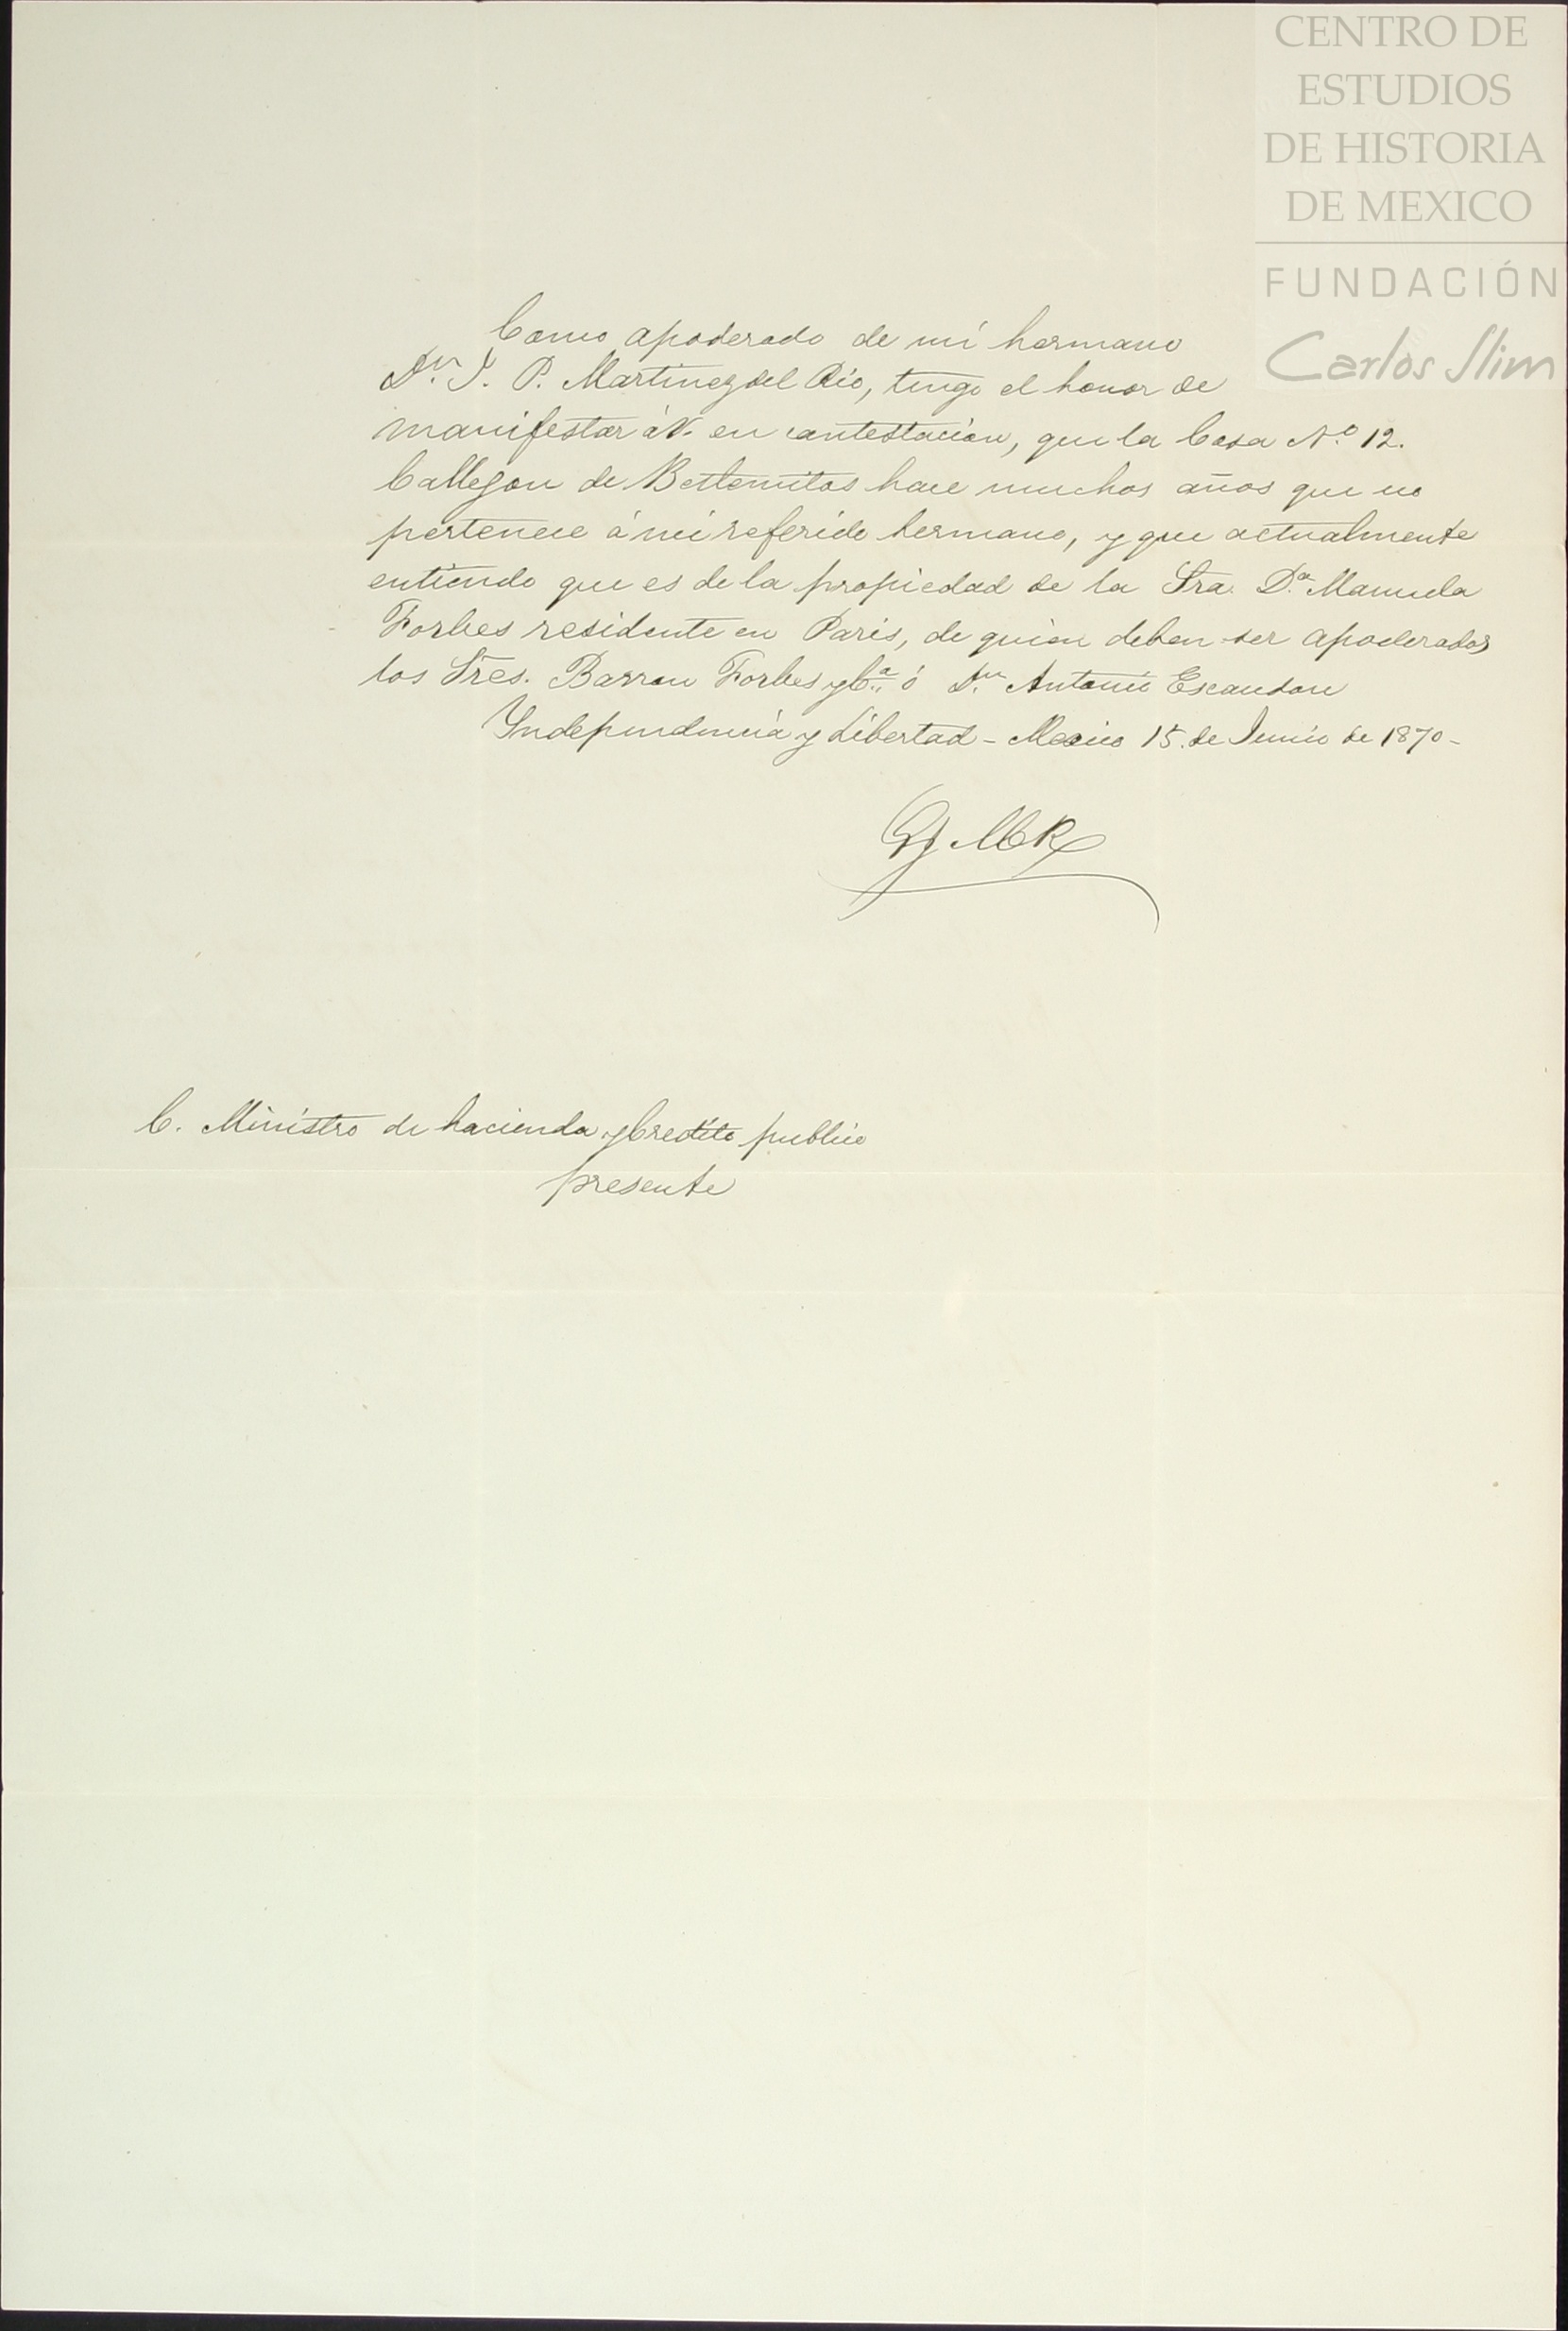 CENTRO DE
ESTUDIOS
DE HISTORIA
DE MEXICO
FUNDACIÓN
Carlos Slim
Como apoderado de mi hermano
Dn. J. P. Martinez del Rio, tengo el honor de
manifestar á V. en contestacion, que la Casa No. 12.
Callejon de Betlemitas hace muchos años que no
pertenece á mi referido hermano, y que actualmente
entiendo que es de la propiedad de la Sra. Da. Manuela
Forbes residente en Paris, de quien deben ser apoderados
los Sres. Barron Forbes y Ca. ó Dn. Antonio Escandon
Yndependencia y Libertad - Mexico 15. de Junio de 1870 -
C. Ministro de hacienda y Credito publico
presente